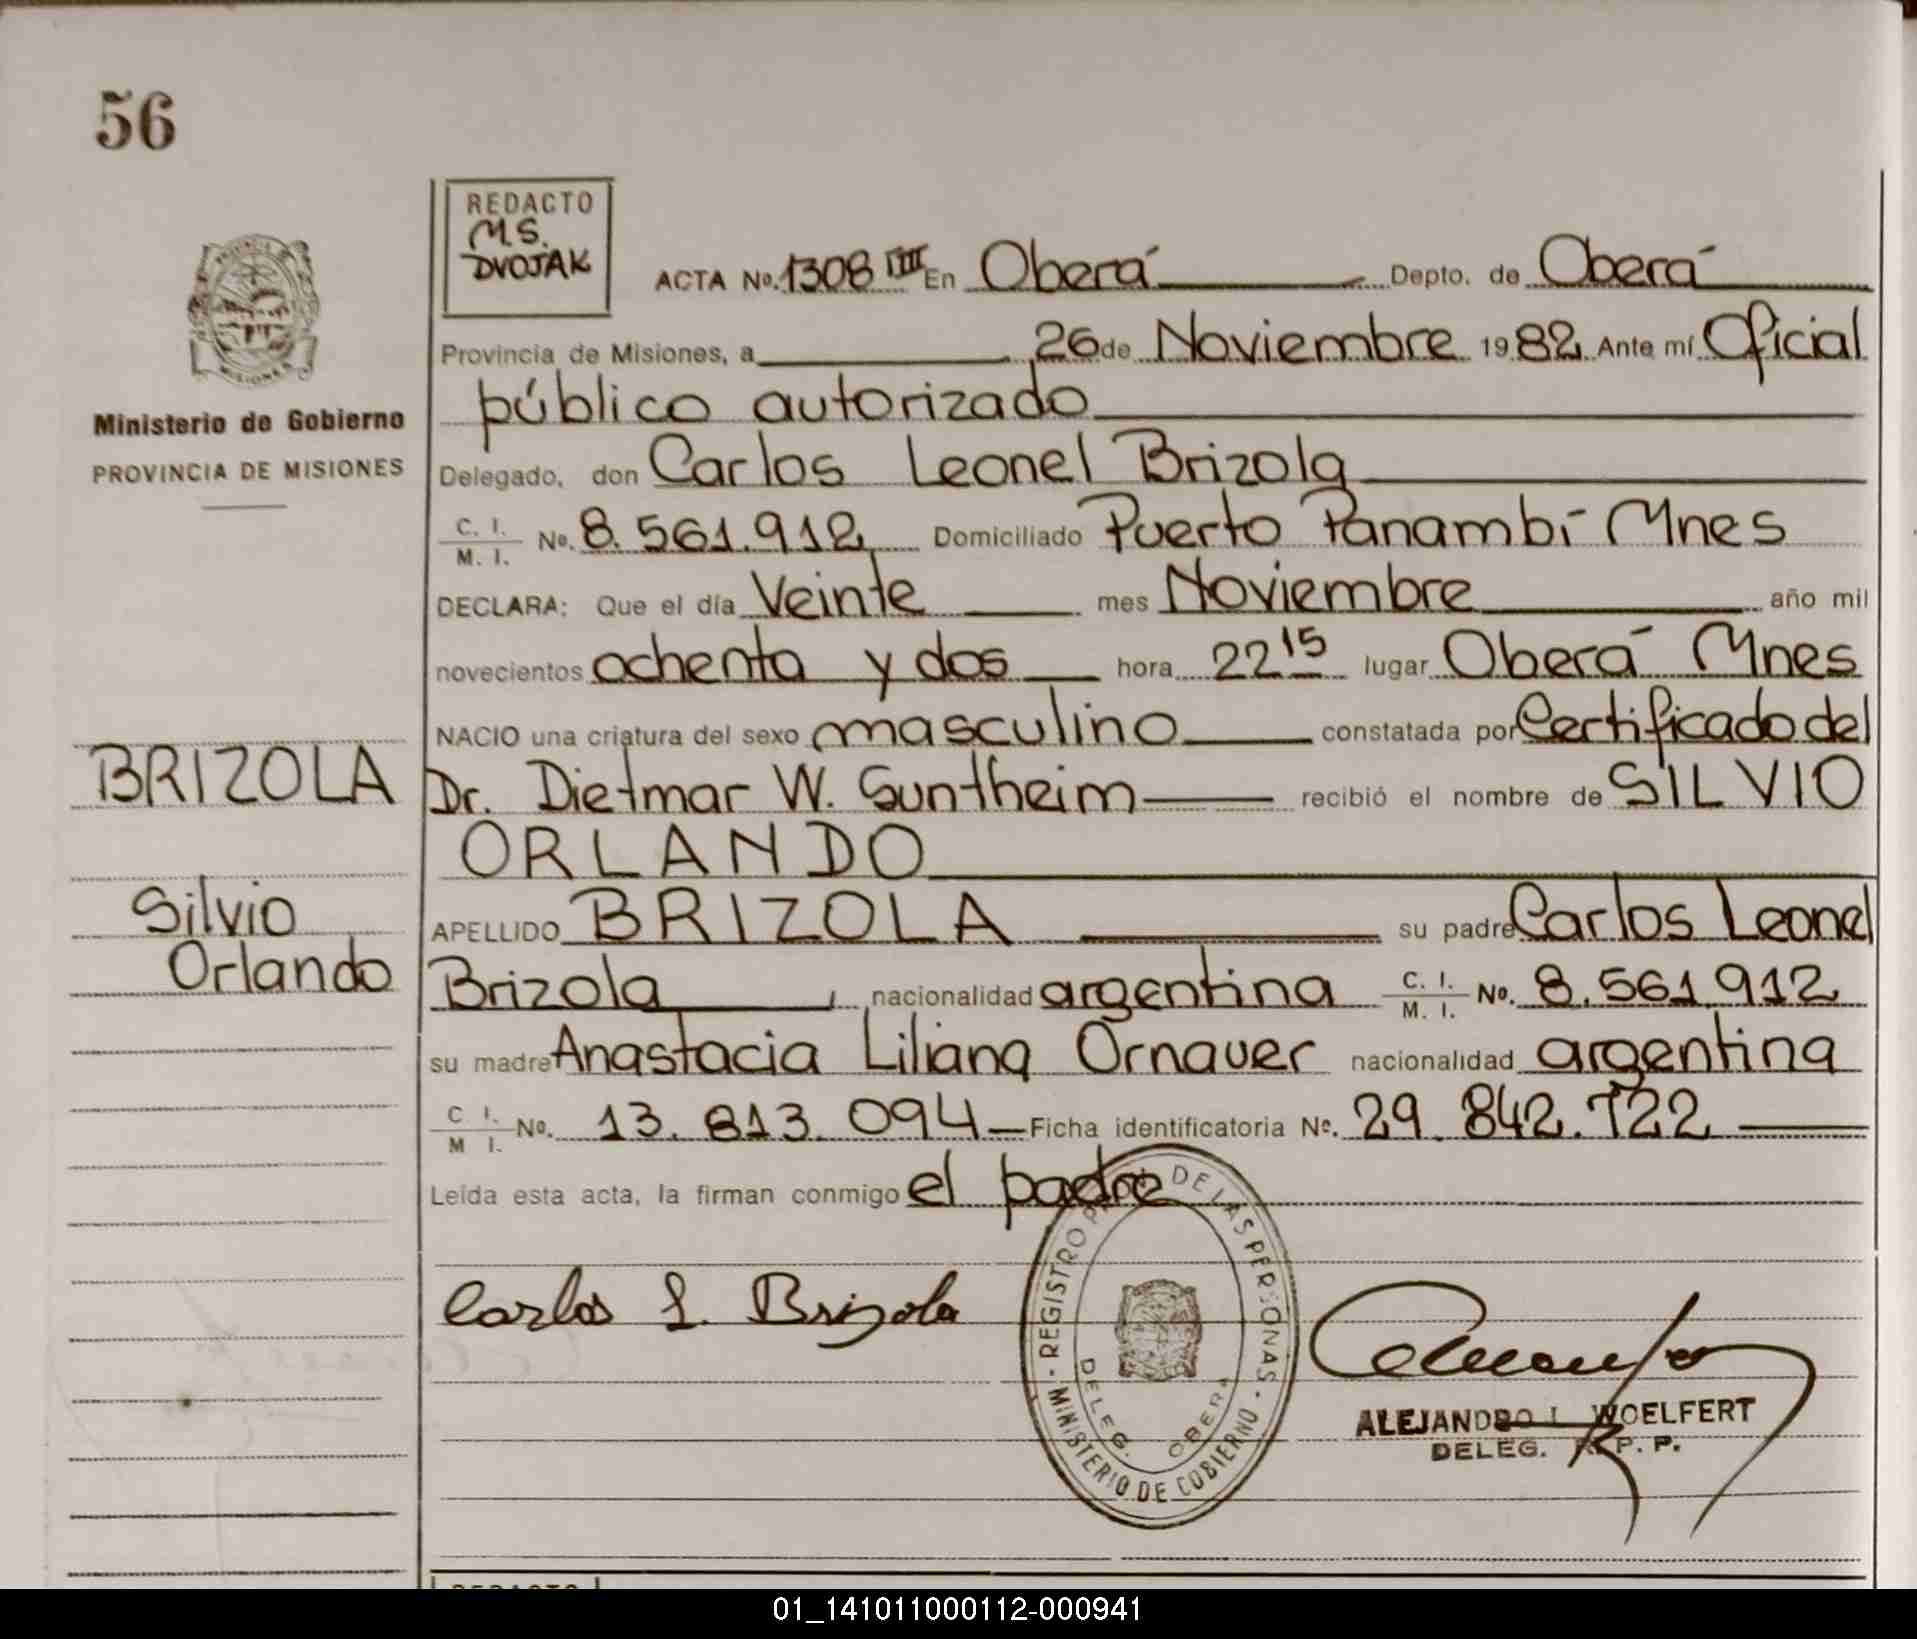 56
REDACTO
M.S.
DVOJAK
ACTA No. 1308 III En Oberá Depto. de Oberá
Provincia de Misiones, a 26 de Noviembre 1982 Ante mí Oficial
público autorizado
Ministerio de Gobierno
PROVINCIA DE MISIONES
Delegado, don Carlos Leonel Brizola
C. I.
M. I.
No. 8.561.912 Domiciliado Puerto Panambí Mnes
DECLARA: Que el día Veinte mes Noviembre año mil
novecientos ochenta y dos hora 22 15 lugar Oberá Mnes
NACIO una criatura del sexo masculino constatada por Certificado del
Dr. Dietmar W. Suntheim recibió el nombre de SILVIO
ORLANDO
BRIZOLA
Silvio
Orlando
APELLIDO BRIZOLA su padre Carlos Leonel
Brizola nacionalidad argentina C. I. M. I. No. 8.561.912
su madre Anastacia Liliana Ornauer nacionalidad argentina
C I. M I. No. 13.813.094 Ficha identificatoria No. 29.842.722
Leída esta acta, la firman conmigo el padre
Carlos L. Brizola
REGISTRO DE LAS PERSONAS
MINISTERIO DE GOBIERNO
DELEG. OBERA
ALEJANDRO L. WOELFERT
DELEG. R. P. P.
01_141011000112-000941